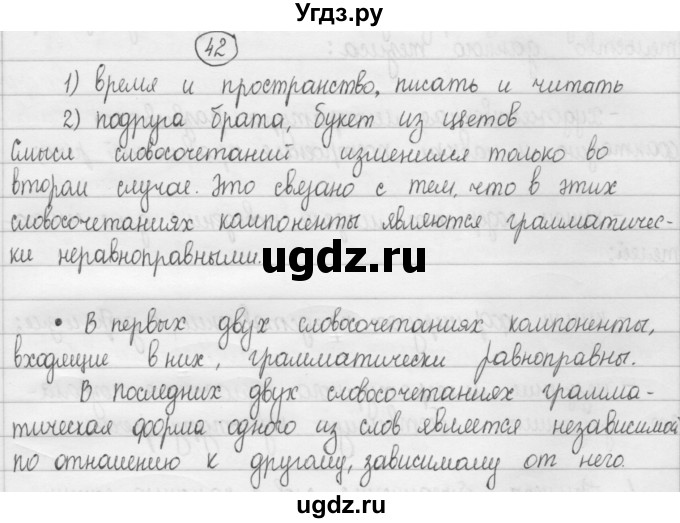 Угдз.ру
42
1) время и пространство, писать и читать
2) подруга брата, букет из цветов
Смысл словосочетаний изменился только во
втором случае. Это связано с тем, что в этих
словосочетаниях компоненты являются грамматичес-
ки неравноправными.
ugdz.ru
• В первых двух словосочетаниях компоненты,
входящие в них, грамматически равноправны.
В последних двух словосочетаниях грамма-
тическая форма одного из слов является независимой
по отношению к другому, зависимому от него.
ugdz.ru
ugdz.ru